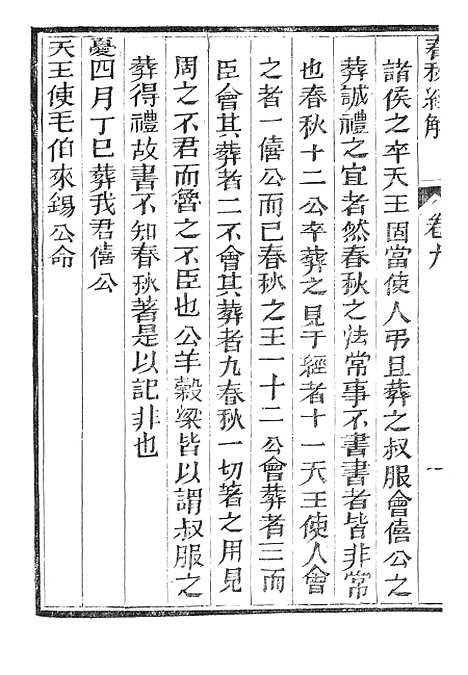 春秋經解
卷九
一
諸侯之卒天王固當使人弔且葬之叔服會僖公之
葬誠禮之宜者然春秋之法常事不書書者皆非常
也春秋十二公卒葬之見于經者十一天王使人會
之者一僖公而已春秋之王一十二公會葬者三而
臣會其葬者二不會其葬者九春秋一切著之用見
周之不君而魯之不臣也公羊穀梁皆以謂叔服之
葬得禮故書不知春秋著是以記非也
夏四月丁巳葬我君僖公
天王使毛伯來錫公命